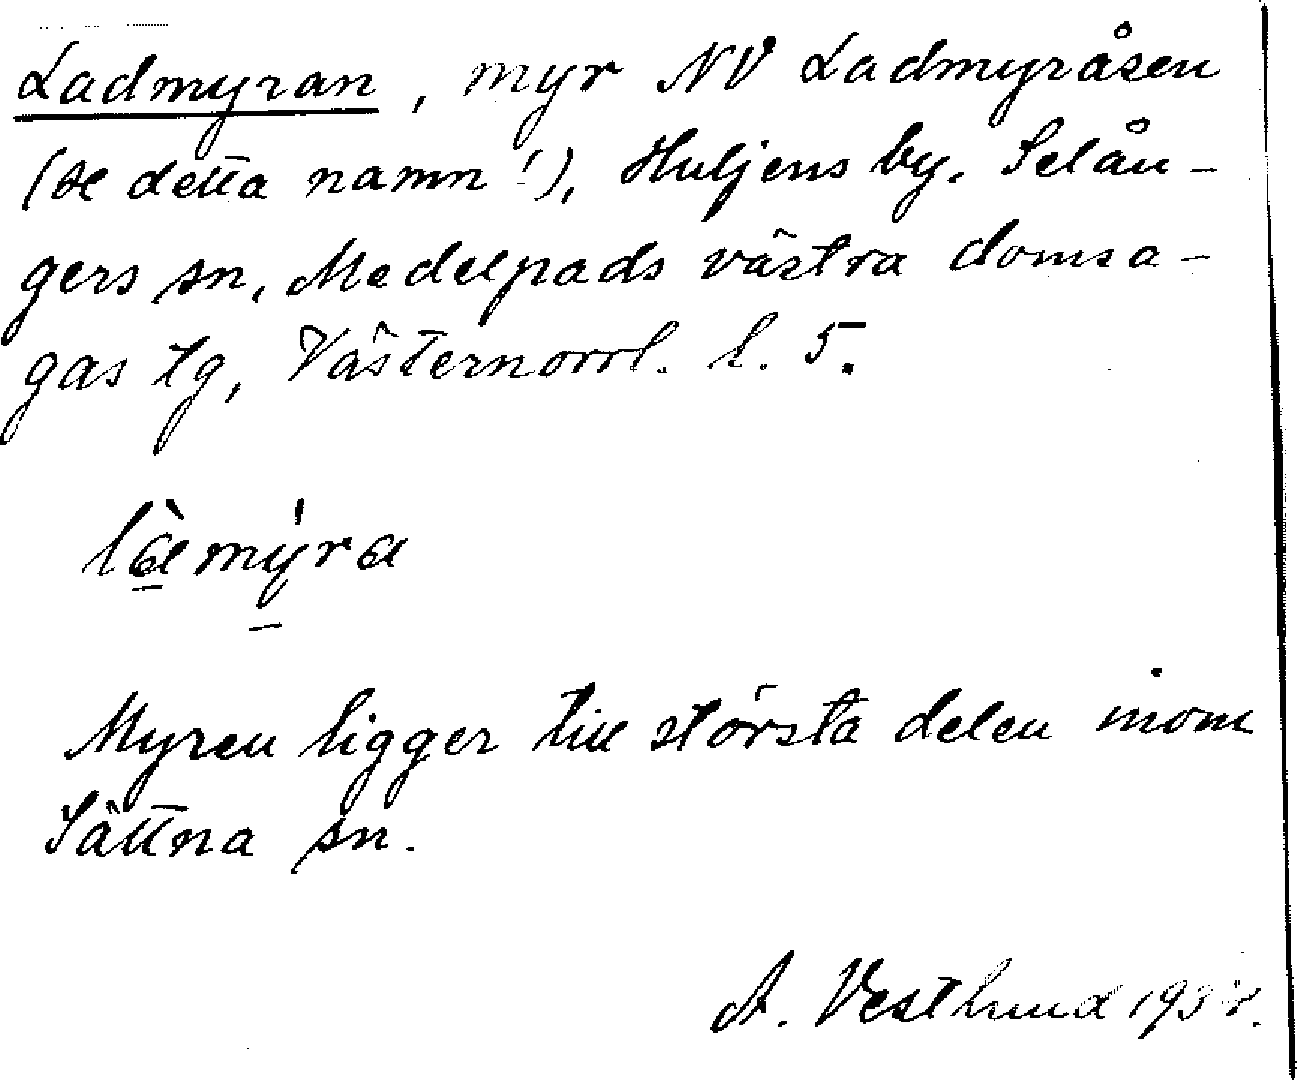 Ladmyran, myr NV Ladmyråsen
(se detta namn!), Huljens by, Selån-
gers sn, Medelpads västra domsa-
gas tg, Västernorrl. l. 5.
là̱mẏ̱ra
Myren ligger till största delen inom
Sättna sn.
A. Vestlund